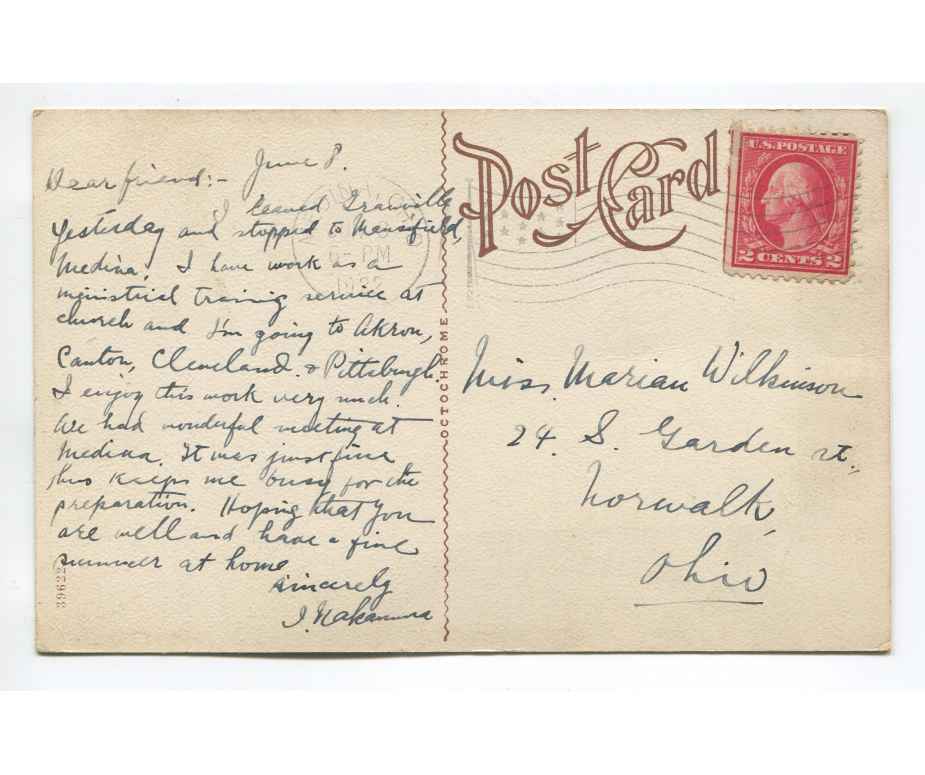 June 8.
Dear friend:-
I leaved Granville
yesterday and stopped to Mansifield,
Medina. I have work as a
ministrial training service at
church and I'm going to Akron,
Canton, Cleveland. & Pittsburgh.
I enjoy this work very much.
We had wonderful meeting at
Medina. It was just fine
this keeps me busy for the
preparation. Hoping that you
are well and have a fine
summer at home
sincerely
I. Nakamura
39622
OCTOCHROME
Post Card
PM
U.S. POSTAGE
2 CENTS 2
Miss. Marian Wilkinson
24. S. Garden st.,
Norwalk,
Ohio